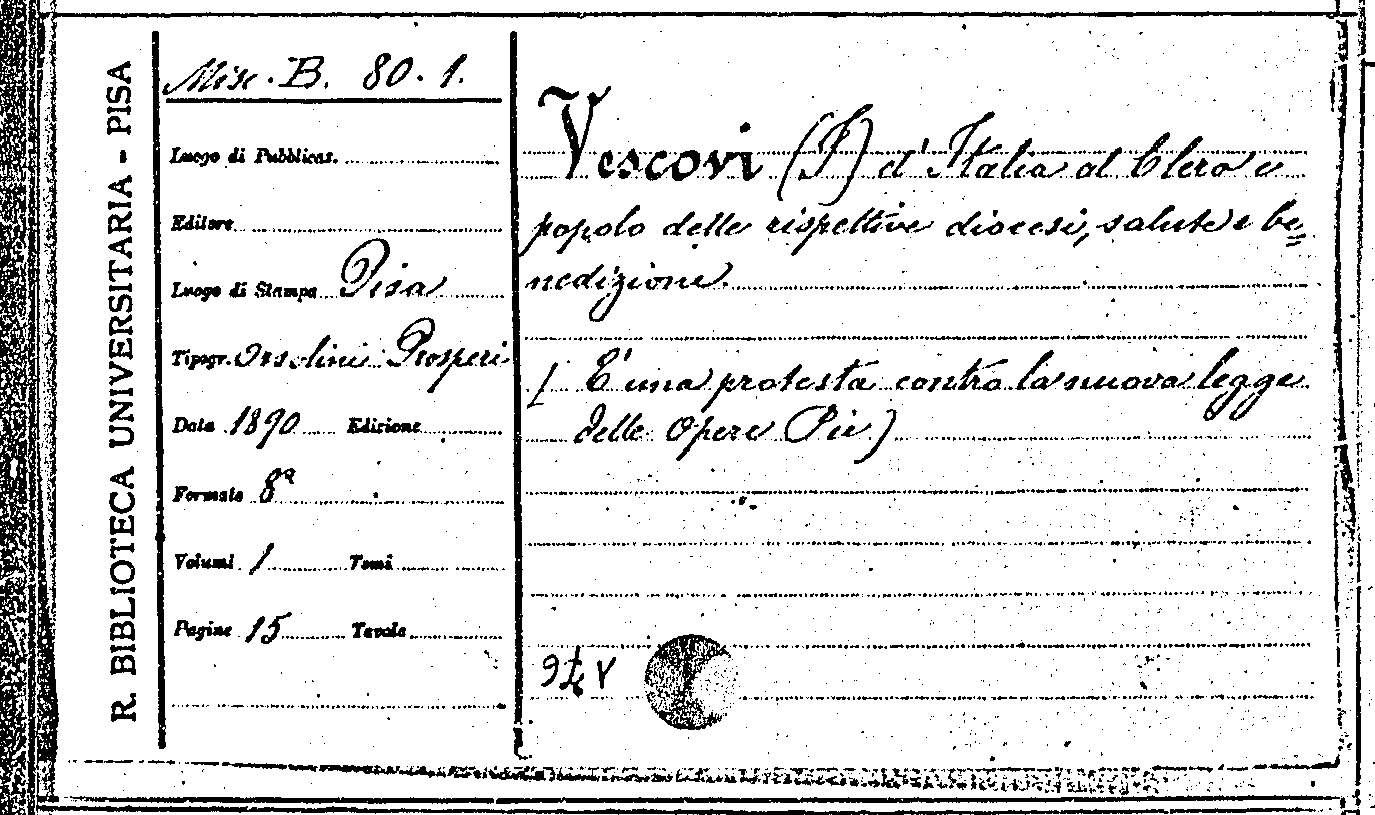 R. BIBLIOTECA UNIVERSITARIA - PISA
Misc. B. 80. 1.
Luogo di Pubblicaz.
Editore
Luogo di Stampa Pisa
Tipogr. Orsolini Prosperi
Data 1890 Edizione
Formato 8º
Volumi 1 Tomi
Pagine 15 Tavole
Vescovi (I) d'Italia al Clero e
popolo delle rispettive diocesi, salute e be=
nedizione.
( È una protesta contro la nuova legge
delle Opere Pie)